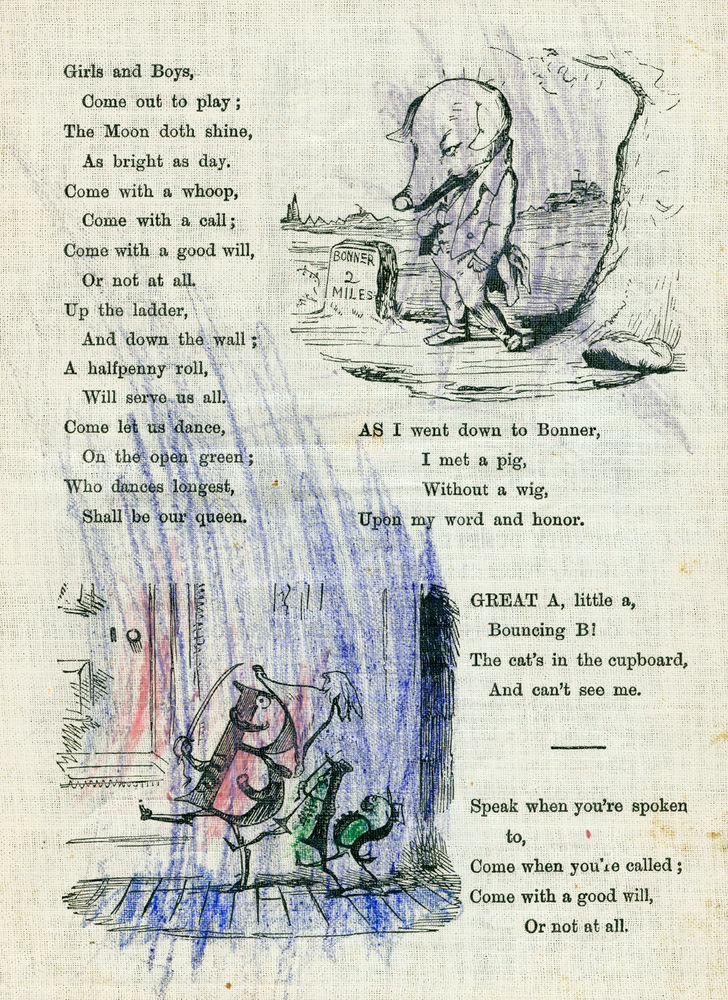 Girls and Boys,
Come out to play;
The Moon doth shine,
As bright as day.
Come with a whoop,
Come with a call;
Come with a good will,
Or not at all.
Up the ladder,
And down the wall;
A halfpenny roll,
Will serve us all.
Come let us dance,
On the open green;
Who dances longest,
Shall be our queen.
BONNER
2
MILES
AS I went down to Bonner,
I met a pig,
Without a wig,
Upon my word and honor.
GREAT A, little a,
Bouncing B!
The cat's in the cupboard,
And can't see me.
Speak when you're spoken
to,
Come when you're called;
Come with a good will,
Or not at all.